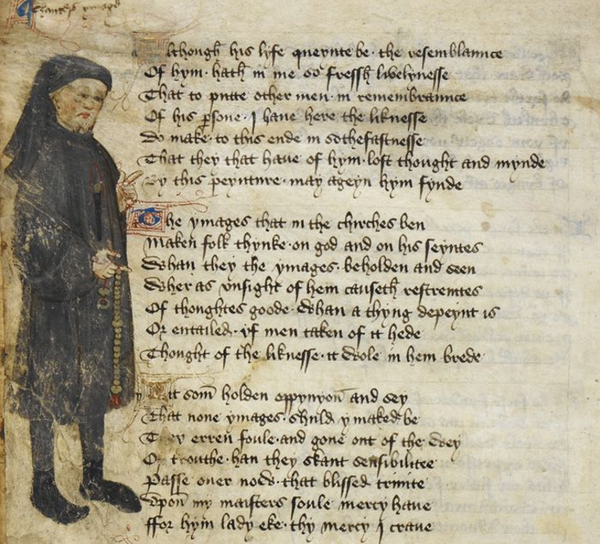 Chaucers ymage
Although his lyfe queynte be · the resemblaunce
Of hym · hath in me so fressh livelynesse
That to putte other men in remembraunce
Of his ꝑsone · I have here the liknesse
Do make · to this ende in sothefastnesse
That they that have of hym · lost thought and mynde
By this peynture · may ageyn hym fynde
The ymages that in the chirches ben
Maken folk thynke · on god and on his seyntes
Whan they the ymages · beholden and seen
Wher as vnsight of hem causeth restreintes
Of thoughtes goode · Whan a thyng depeynt is
Or entailed · yf men taken of it hede
Thought of the liknesse · it wole in hem brede
Yit som̄ holden oppynyon̄ and sey
That none ymages · shuld ymaked be
They erren foule · and gone out of the wey
Of trouthe · han they skant sensibilitee
Passe ouer · that blissed trinite
Vpon my maisters soule mercy have
ffor hym lady eke · thy mercy I crave